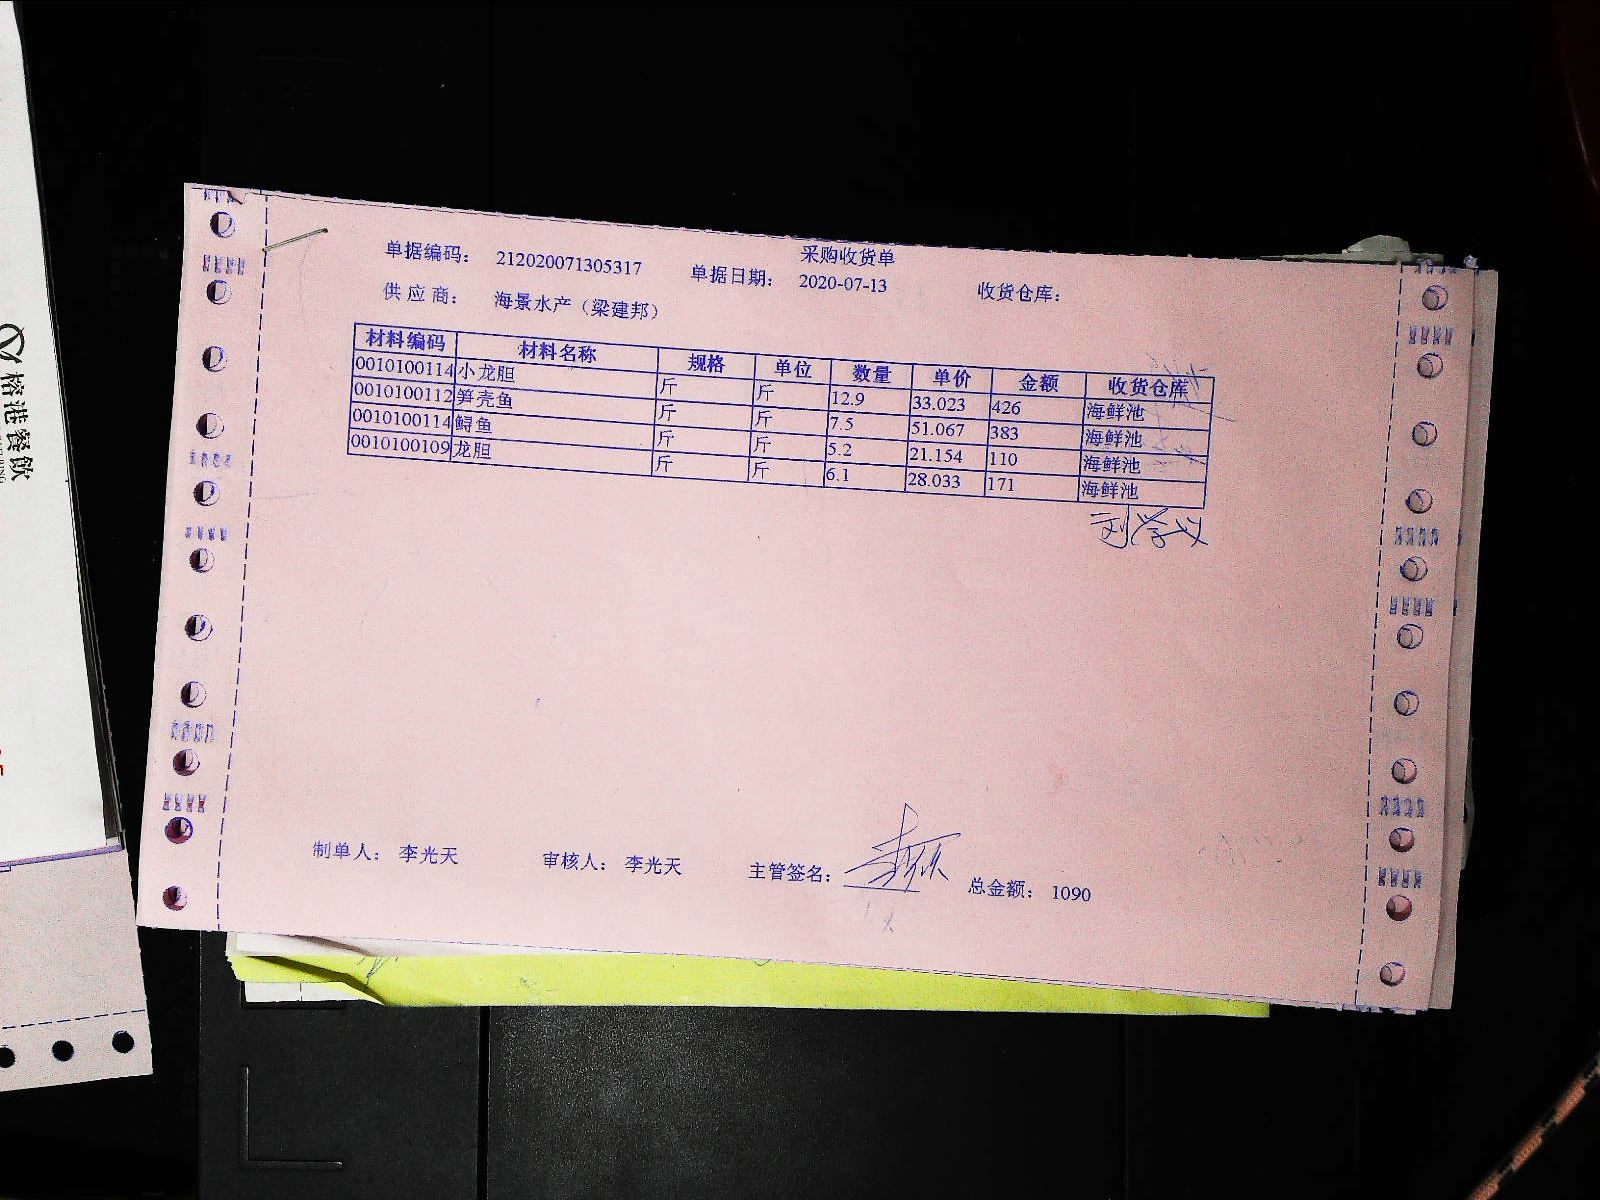 采购收货单
单据编码： 212020071305317 单据日期： 2020-07-13 收货仓库：
供 应 商： 海景水产（梁建邦）
材料编码 材料名称 规格 单位 数量 单价 金额 收货仓库
0010100114 小龙胆 斤 斤 12.9 33.023 426 海鲜池
0010100112 笋壳鱼 斤 斤 7.5 51.067 383 海鲜池
0010100114 鲟鱼 斤 斤 5.2 21.154 110 海鲜池
0010100109 龙胆 斤 斤 6.1 28.033 171 海鲜池
制单人： 李光天 审核人： 李光天 主管签名： 总金额： 1090
榕港餐飲